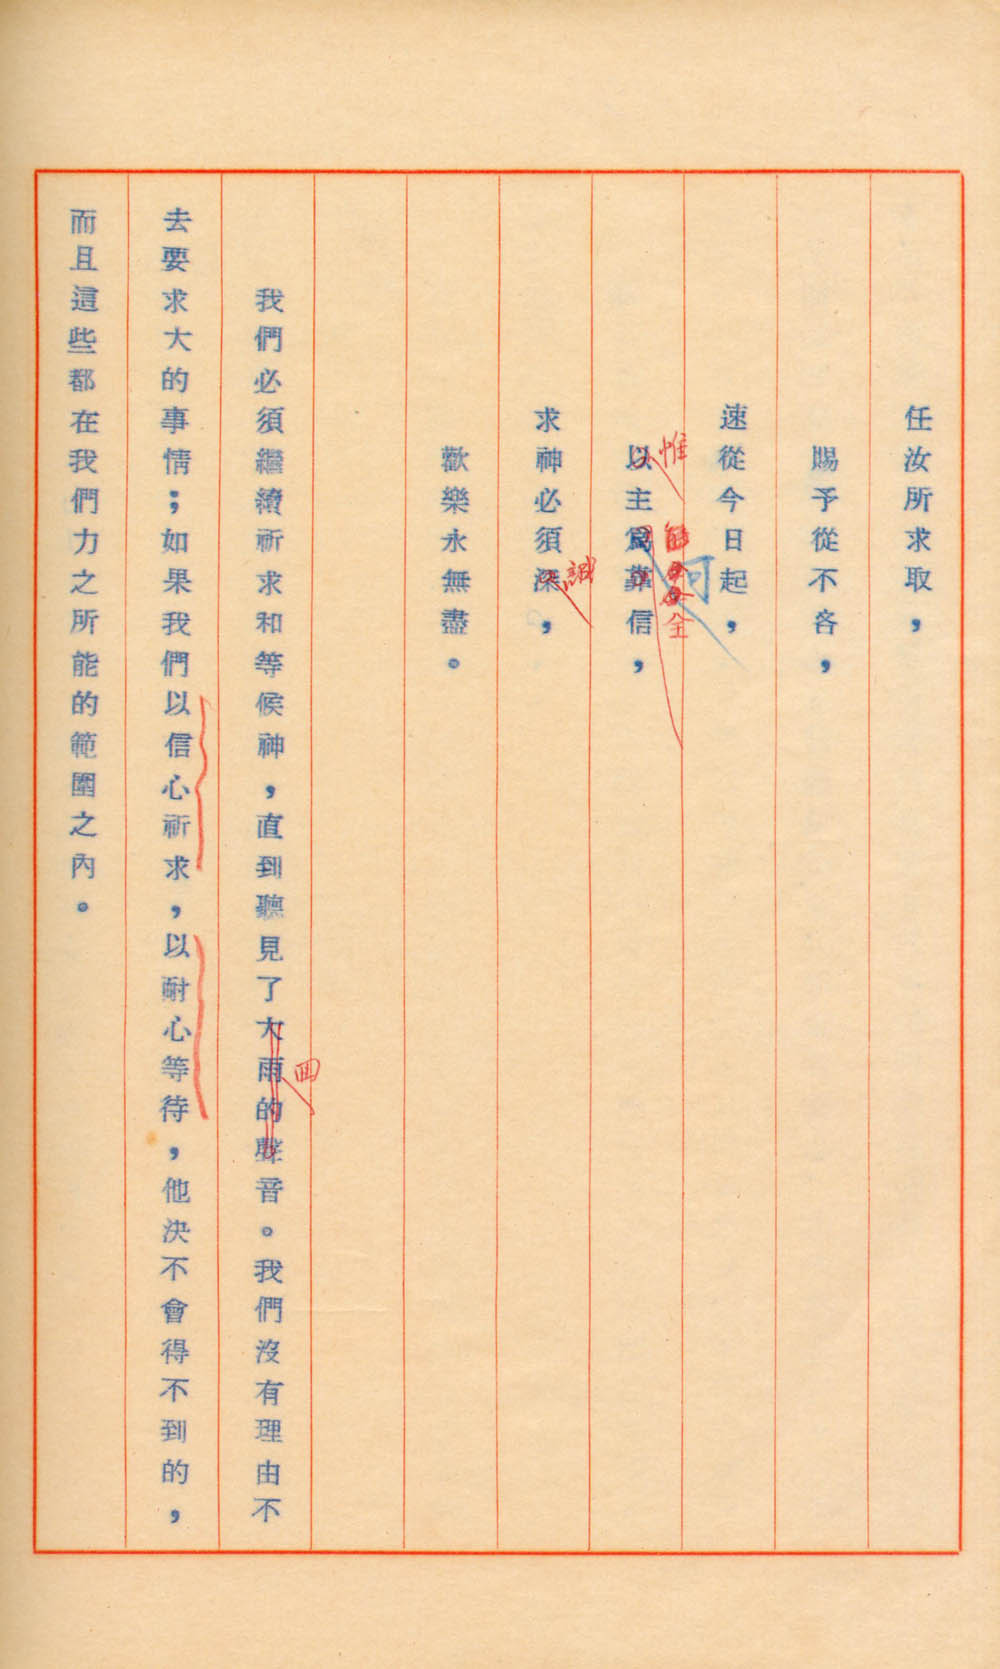 任汝所求取，
賜予從不吝，
速從今日起，
惟
可
全
以主爲靠信，
誠
求神必須深，
歡樂永無盡。
回
我們必須繼續祈求和等候神，直到聽見了大雨的聲音。我們沒有理由不
去要求大的事情；如果我們以信心祈求，以耐心等待，他決不會得不到的，
而且這些都在我們力之所能的範圍之內。